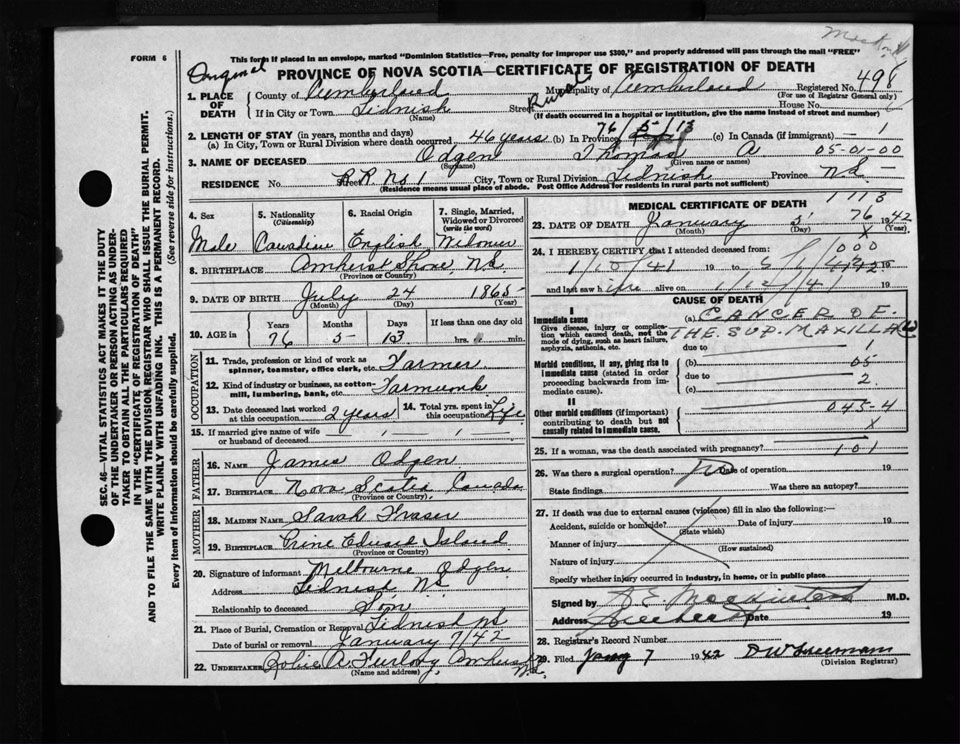 FORM 6
This form if placed in an envelope, marked "Dominion Statistics—Free, penalty for improper use $300," and properly addressed will pass through the mail "FREE"
Original
PROVINCE OF NOVA SCOTIA—CERTIFICATE OF REGISTRATION OF DEATH
1. PLACE OF DEATH
County of Cumberland Municipality of Cumberland Registered No. 498
(For use of Registrar General only)
If in City or Town Tidnish Street Rural House No.
(Name) (If death occurred in a hospital or institution, give the name instead of street and number)
2. LENGTH OF STAY (in years, months and days)
(a) In City, Town or Rural Division where death occurred 46 years (b) In Province 76/5/13 (c) In Canada (if immigrant) — 1
3. NAME OF DECEASED Odgen Thomas A 05-01-00
(Surname) (Given name or names)
RESIDENCE No. R.R. No 1 Street City, Town or Rural Division Tidnish Province N.S.
(Residence means usual place of abode. Post Office Address for residents in rural parts not sufficient)
4. Sex
Male
5. Nationality
(Citizenship)
Canadian
6. Racial Origin
English
7. Single, Married, Widowed or Divorced
(write the word)
Widower
8. BIRTHPLACE Amherst Shore, N.S.
(Province or Country)
9. DATE OF BIRTH July 24 1865
(Month) (Day) (Year)
10. AGE in Years Months Days If less than one day
76 5 13 hrs. min.
OCCUPATION
11. Trade, profession or kind of work as spinner, teamster, office clerk, etc. Farmer
12. Kind of industry or business, as cotton-mill, lumbering, bank, etc.
13. Date deceased last worked at this occupation 2 years
14. Total yrs. spent in this occupation Life
15. If married give name of wife or husband of deceased
FATHER
16. NAME James Odgen
17. BIRTHPLACE Nova Scotia Canada
(Province or Country)
MOTHER
18. MAIDEN NAME Sarah Fraser
19. BIRTHPLACE Prince Edward Island
(Province or Country)
20. Signature of informant Melbourne Odgen
Address Tidnish N.S.
Relationship to deceased Son
21. Place of Burial, Cremation or Removal Tidnish N.S.
Date of burial or removal January 7/42
22. UNDERTAKER Amherst N.S.
(Name and address)
MEDICAL CERTIFICATE OF DEATH
1113
23. DATE OF DEATH January 5 76 1942
(Month) (Day) (Year)
X
24. I HEREBY CERTIFY that I attended deceased from:
000
1/10/41 19 to 5/1/42 1942
and last saw him alive on 1/12/41 19
CAUSE OF DEATH
I
Immediate cause
Give disease, injury or complication which caused death, not the mode of dying, such as heart failure, asphyxia, asthenia, etc.
(a) CANCER OF
THE SUP. MAXILLA
due to 1
Morbid conditions, if any, giving rise to immediate cause (stated in order proceeding backwards from immediate cause).
(b) 05
due to 2
II
Other morbid conditions (if important) contributing to death but not causally related to immediate cause.
(c) 045-4
X
25. If a woman, was the death associated with pregnancy? 101
26. Was there a surgical operation? No Date of operation 19
State findings Was there an autopsy?
27. If death was due to external causes (violence) fill in also the following:—
Accident, suicide or homicide? Date of injury 19
(State which)
Manner of injury
(How sustained)
Nature of injury
Specify whether injury occurred in industry, in home, or in public place
Signed by M.D.
Address Date 19
28. Registrar's Record Number
29. Filed Jany 7 1942 D W Freeman
(Division Registrar)
SEC. 46—VITAL STATISTICS ACT MAKES IT THE DUTY
OF THE UNDERTAKER OR PERSON ACTING AS UNDER-
TAKER TO OBTAIN ALL THE PARTICULARS REQUIRED
IN THE "CERTIFICATE OF REGISTRATION OF DEATH"
AND TO FILE THE SAME WITH THE DIVISION REGISTRAR WHO SHALL ISSUE THE BURIAL PERMIT.
WRITE PLAINLY WITH UNFADING INK. THIS IS A PERMANENT RECORD.
Every item of information should be carefully supplied. (See reverse side for instructions.)